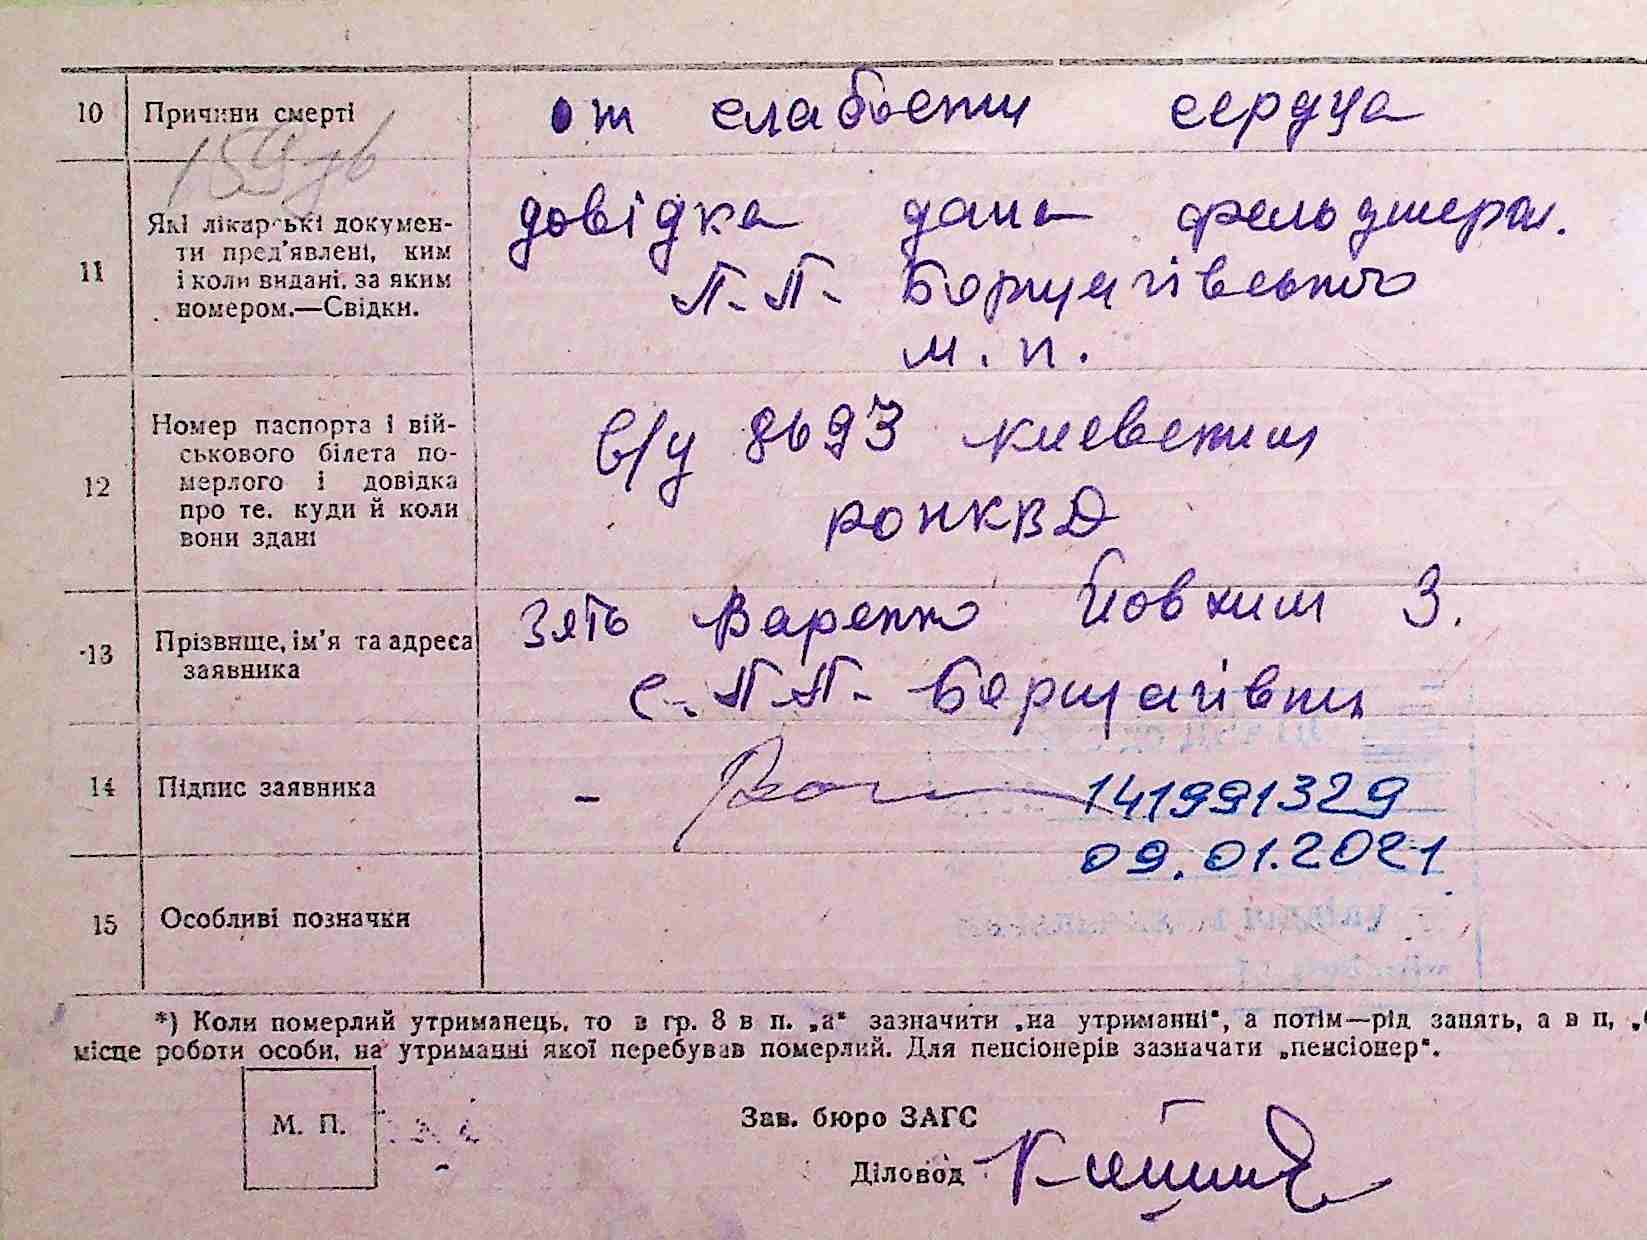 10 Причини смерті от слабости сердца
159
11 Які лікарські докумен-
ти пред'явлені, ким
і коли видані, за яким
номером.—Свідки.
довідка дана фельдшером.
П-П- Борщагівського
м. п.
12 Номер паспорта і вій-
ськового білета по-
мерлого і довідка
про те, куди й коли
вони здані
в/у 8693 киевским
РОНКВД
13 Прізвище, ім'я та адреса
заявника
Зять Варенко Йовхим З.
с. П-П- Борщагівки
14 Підпис заявника -
141991329
09.01.2021
15 Особливі позначки
*) Коли померлий утриманець, то в гр. 8 в п. „а" зазначити „на утриманні", а потім—рід занять, а в п,
місце роботи особи, на утриманні якої перебував померлий. Для пенсіонерів зазначати „пенсіонер".
М. П.
Зав. бюро ЗАГС
Діловод